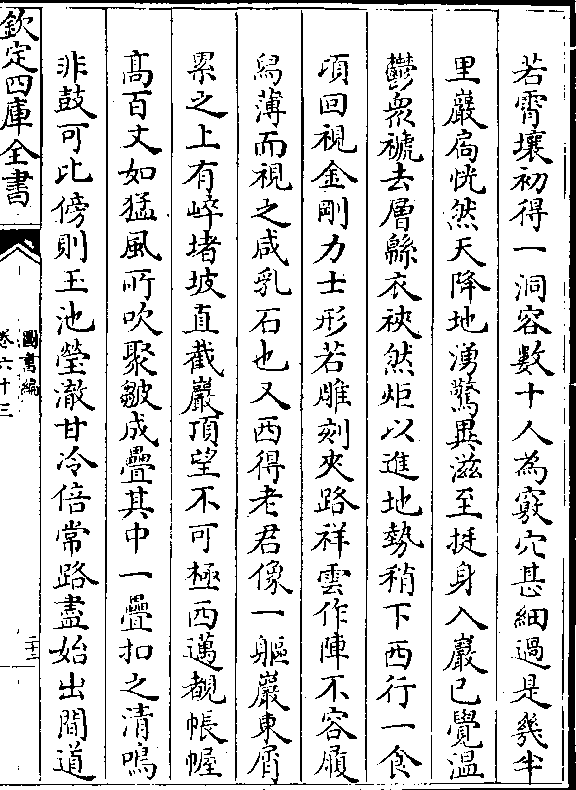 若霄壤初得一洞容數十人為竅穴甚細過是幾半
里巖扃恍然天降地湧驚異滋至挺身入巖已覺温
鬱衆褫去層緜衣袂然炬以進地勢稍下西行一食
頃回視金剛力士形若雕刻夾路祥雲作陣不容屐
舄薄而視之咸乳石也又西得老君像一軀巖東屑
累之上有崪堵坡直截巖頂望不可極西邁覩帳幄
髙百丈如猛風所吹聚皺成疊其中一疊扣之清鳴
非鼓可比傍則玉池瑩澈甘冷倍常路盡始出間道
欽定四庫全書
圖書編
卷六十三
二十三